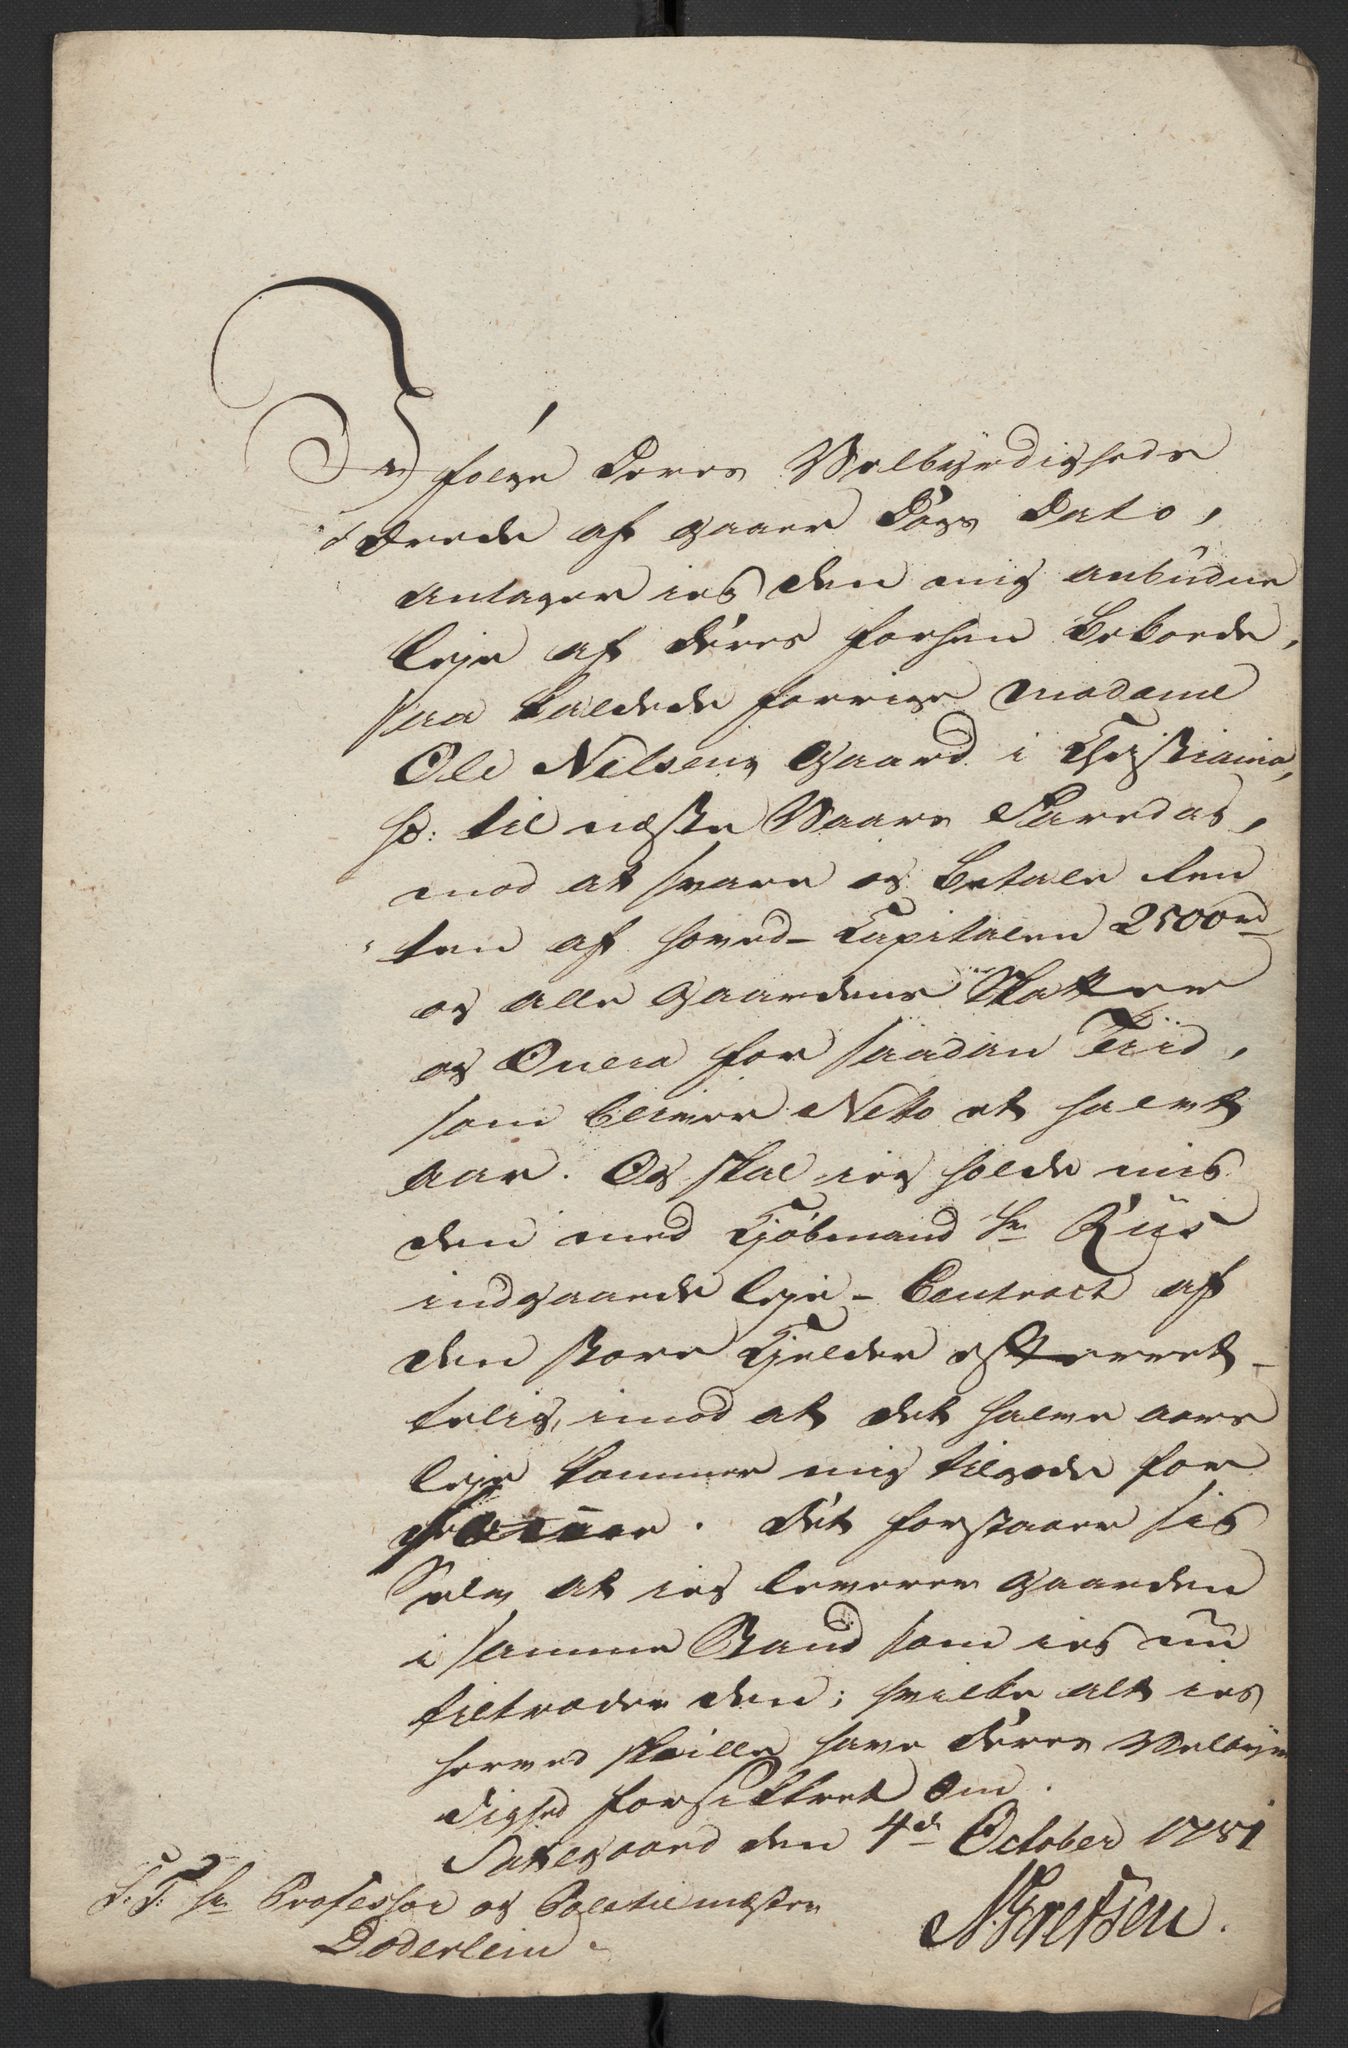 I følge Deres Velbyrdigheds
ærede af gaars Dags Dato,
antager ieg den mig anbudne
leje af Deres forhen beboede,
saa kaldede forrige Madame
Ole Nelsens Gaard i Christiania,
til næste Vaars Faredag,
mod at svare og betale Ren
ten af hoved-Capitalen 2500 rd
og alle Gaardens Skatter
og Onera for saadan Tiid,
som bliver Netto et halvt
aar. Og skal ieg holde mig
den med Kjøbmand Hr Riis
indgaaede leje-Contract af
den store Kjelder efterret-
telig, imod at det halve aars
leje kommer mig tilgode for
. Det forstaaer sig
Selv at ieg leverer Gaarden
i samme Stand som ieg nu
tiltræder den; hvilke alt ieg
herved skulle have Deres Velbyr
dighed forsikkret om.
den 4de October 1781
S. T. Hr Professor og Politiemester
Døderlein